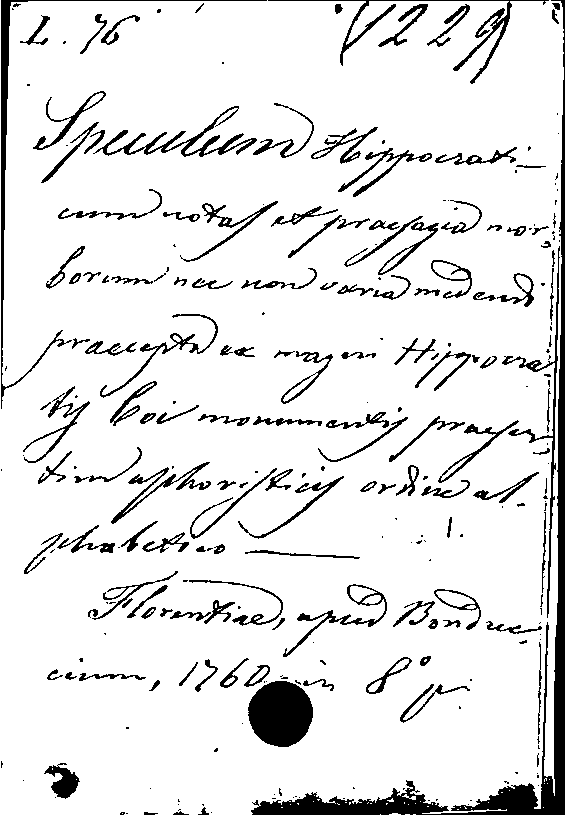 L. 76 (1229)
Speculum Hippocrati-
cum notas et praesagia mor-
borum nec non varia medendi
praecepta ex magni Hippocra-
tis Coi monumentis praeser-
tim aphoristicis ordine al-
phabetico —
Florentiae, apud Bonduc-
cium, 1760 in 8° p.